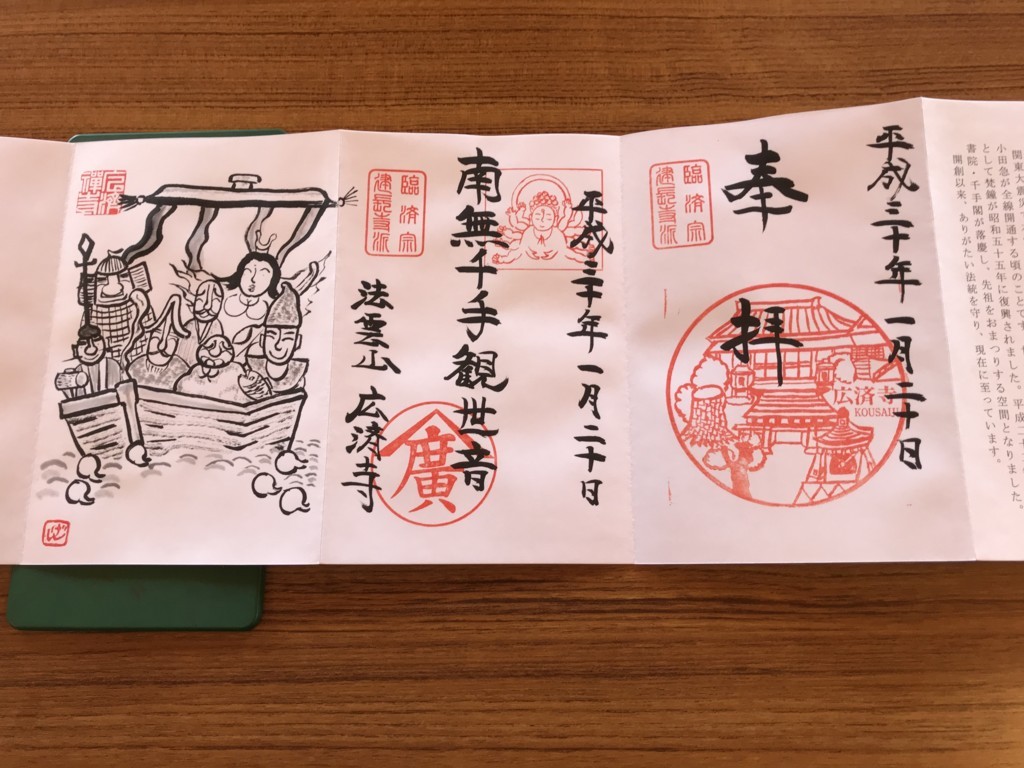 関東大震災
小田急が全線開通する頃のことです。
として梵鐘が昭和五十五年に復興されました。平成二十
書院・千手閣が落慶し、先祖をおまつりする空間となりました。
開創以来、ありがたい法統を守り、現在に至っています。
平成三十年一月二十日
奉拝
広済寺
KOUSAI
臨済宗
建長寺派
平成三十年一月二十日
南無千手観世音
廣
法雲山 広済寺
臨済宗
建長寺派
広済
禅寺